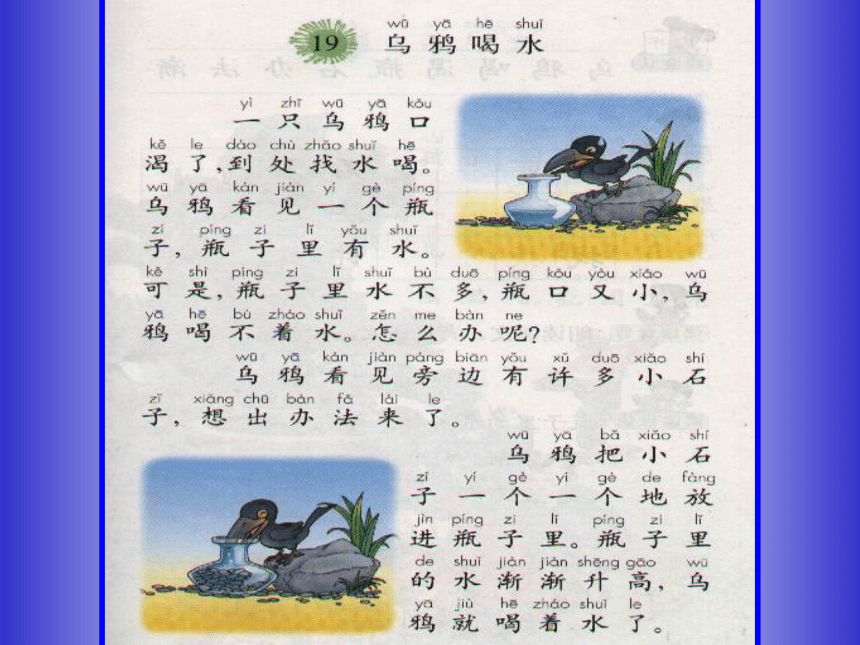 wū yā hē shuǐ
19 乌 鸦 喝 水
yì zhī wū yā kǒu
一 只 乌 鸦 口
kě le dào chù zhǎo shuǐ hē
渴 了,到 处 找 水 喝。
wū yā kàn jiàn yí gè píng
乌 鸦 看 见 一 个 瓶
zi píng zi lǐ yǒu shuǐ
子, 瓶 子 里 有 水。
kě shì píng zi lǐ shuǐ bù duō píng kǒu yòu xiǎo wū
可 是, 瓶 子 里 水 不 多, 瓶 口 又 小, 乌
yā hē bù zháo shuǐ zěn me bàn ne
鸦 喝 不 着 水。怎 么 办 呢?
wū yā kàn jiàn páng biān yǒu xǔ duō xiǎo shí
乌 鸦 看 见 旁 边 有 许 多 小 石
zǐ xiǎng chū bàn fǎ lái le
子, 想 出 办 法 来 了。
wū yā bǎ xiǎo shí
乌 鸦 把 小 石
zǐ yí gè yí gè de fàng
子 一 个 一 个 地 放
jìn píng zi lǐ píng zi lǐ
进 瓶 子 里。瓶 子 里
de shuǐ jiàn jiàn shēng gāo wū
的 水 渐 渐 升 高, 乌
yā jiù hē zháo shuǐ le
鸦 就 喝 着 水 了。